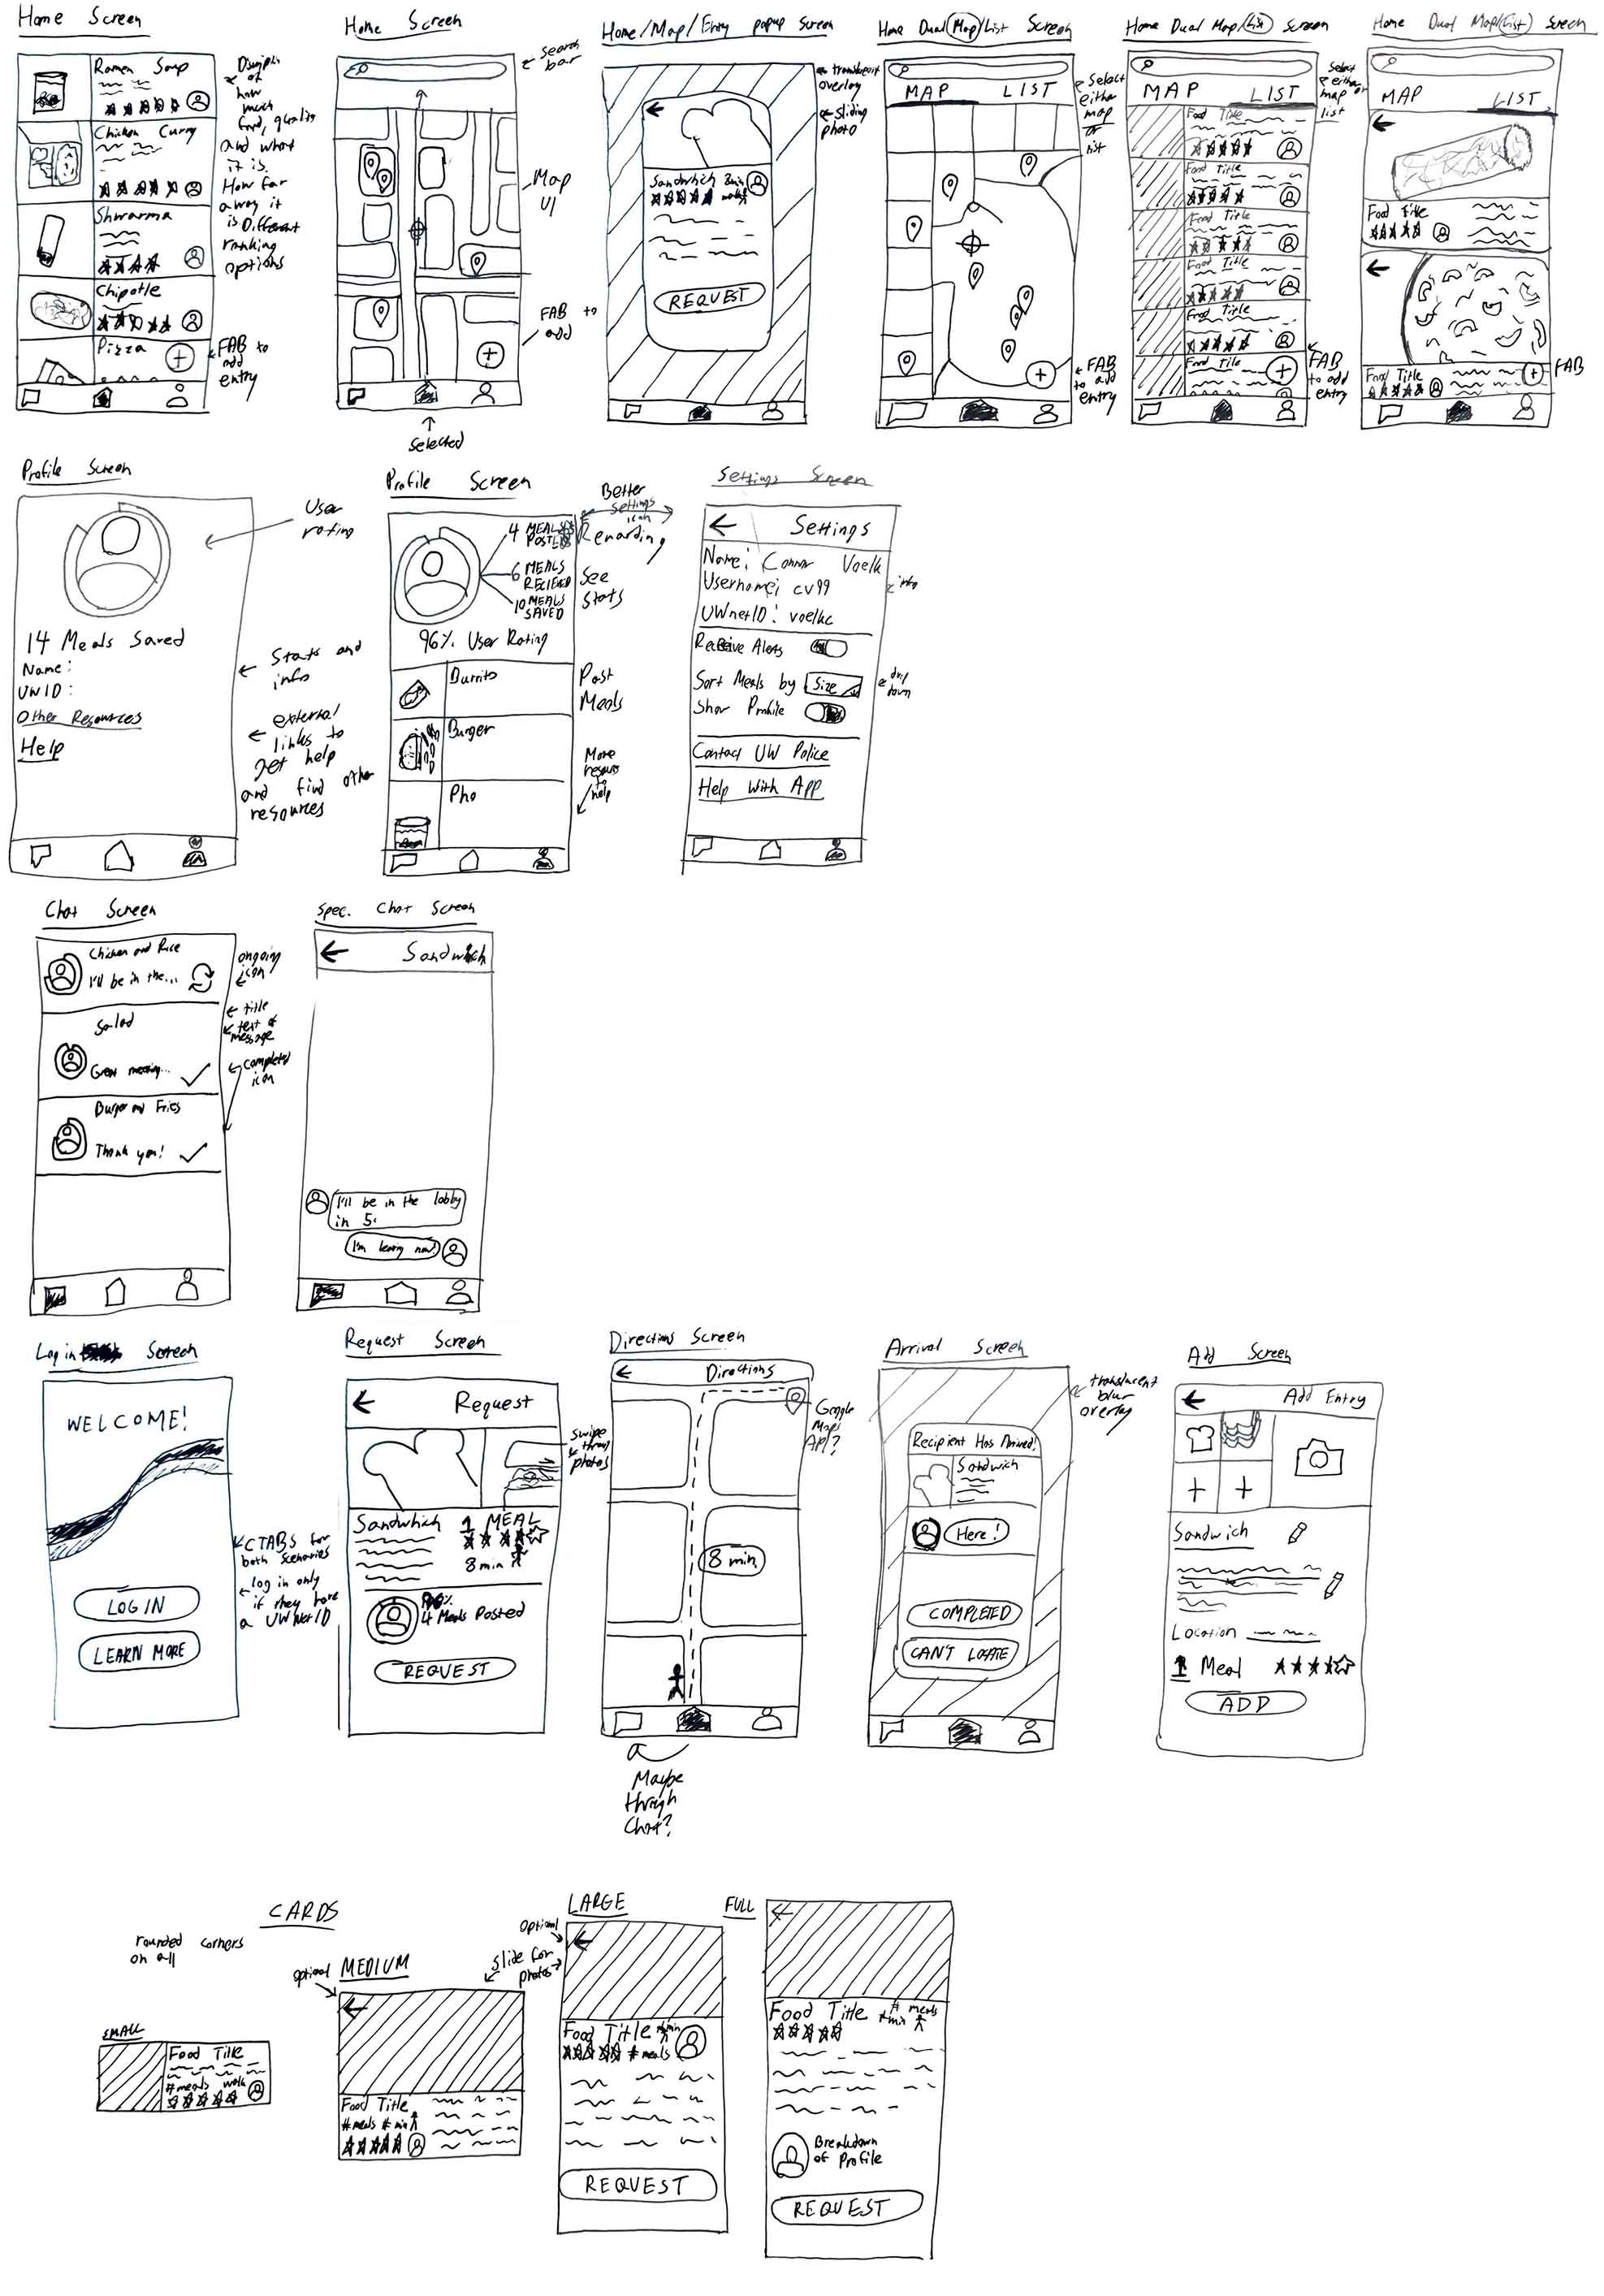 Home Screen
Ramen Soup
Chicken Curry
Shwarma
Chipotle
Pizza
of how much food, quality and what it is. How far away it is. Different ranking options
FAB to add entry
Home Screen
search bar
Map UI
FAB to add
selected
Home/Map/Entry popup screen
overlay
sliding photo
Sandwhich 8min
REQUEST
Home Dual Map/List Screen
MAP LIST
select either map or list
FAB to add entry
Home Dual Map/List Screen
MAP LIST
Select either map or list
Food Title
Food Title
Food Title
Food Title
Food Title
Food Title
FAB to add entry
Home Dual Map/List Screen
MAP LIST
Food Title
Food Title
FAB
Profile Screen
User rating
14 Meals Saved
Name:
UWID:
Other Resources
Help
Stats and info
external links to get help and find other resources
Profile Screen
Better settings icon
4 MEALS
6 MEALS
10 MEALS SAVED
96% User Rating
Burrito
Burger
Pho
Rewarding
See Stats
Past Meals
More
help
Settings Screen
Settings
Name: Connor Voelk
Username: cv99
UWnetID: voelkc
info
Receive Alerts
Sort Meals by Size
down
Show Profile
Contact UW Police
Help With App
Chat Screen
Chicken and Rice
I'll be in the...
Salad
Great meeting...
Burger and Fries
Thank you!
ongoing icon
title
text of message
completed icon
Spec. Chat Screen
Sandwhich
I'll be in the lobby
in 5.
Log in Screen
WELCOME!
LOG IN
LEARN MORE
CTABS for both scenarios
log in only if they have a UWNetID
Request Screen
Request
swipe through photos
Sandwhich 1 MEAL
8 min
4 Meals Posted
REQUEST
Directions Screen
Directions
Google Maps API?
8 min
Maybe through Chat?
Arrival Screen
translucent blur overlay
Recipient Has Arrived!
Sandwich
Here!
COMPLETED
CAN'T LOCATE
Add Screen
Add Entry
Sandwich
Location
1 Meal
ADD
CARDS
rounded corners on all
SMALL
Food Title
#meals walk
optional
MEDIUM
Food Title
#meals #min
slide for photos
optional
LARGE
Food Title #min
#meals
REQUEST
FULL
Food Title # meals
#min
Breakdown of Profile
REQUEST